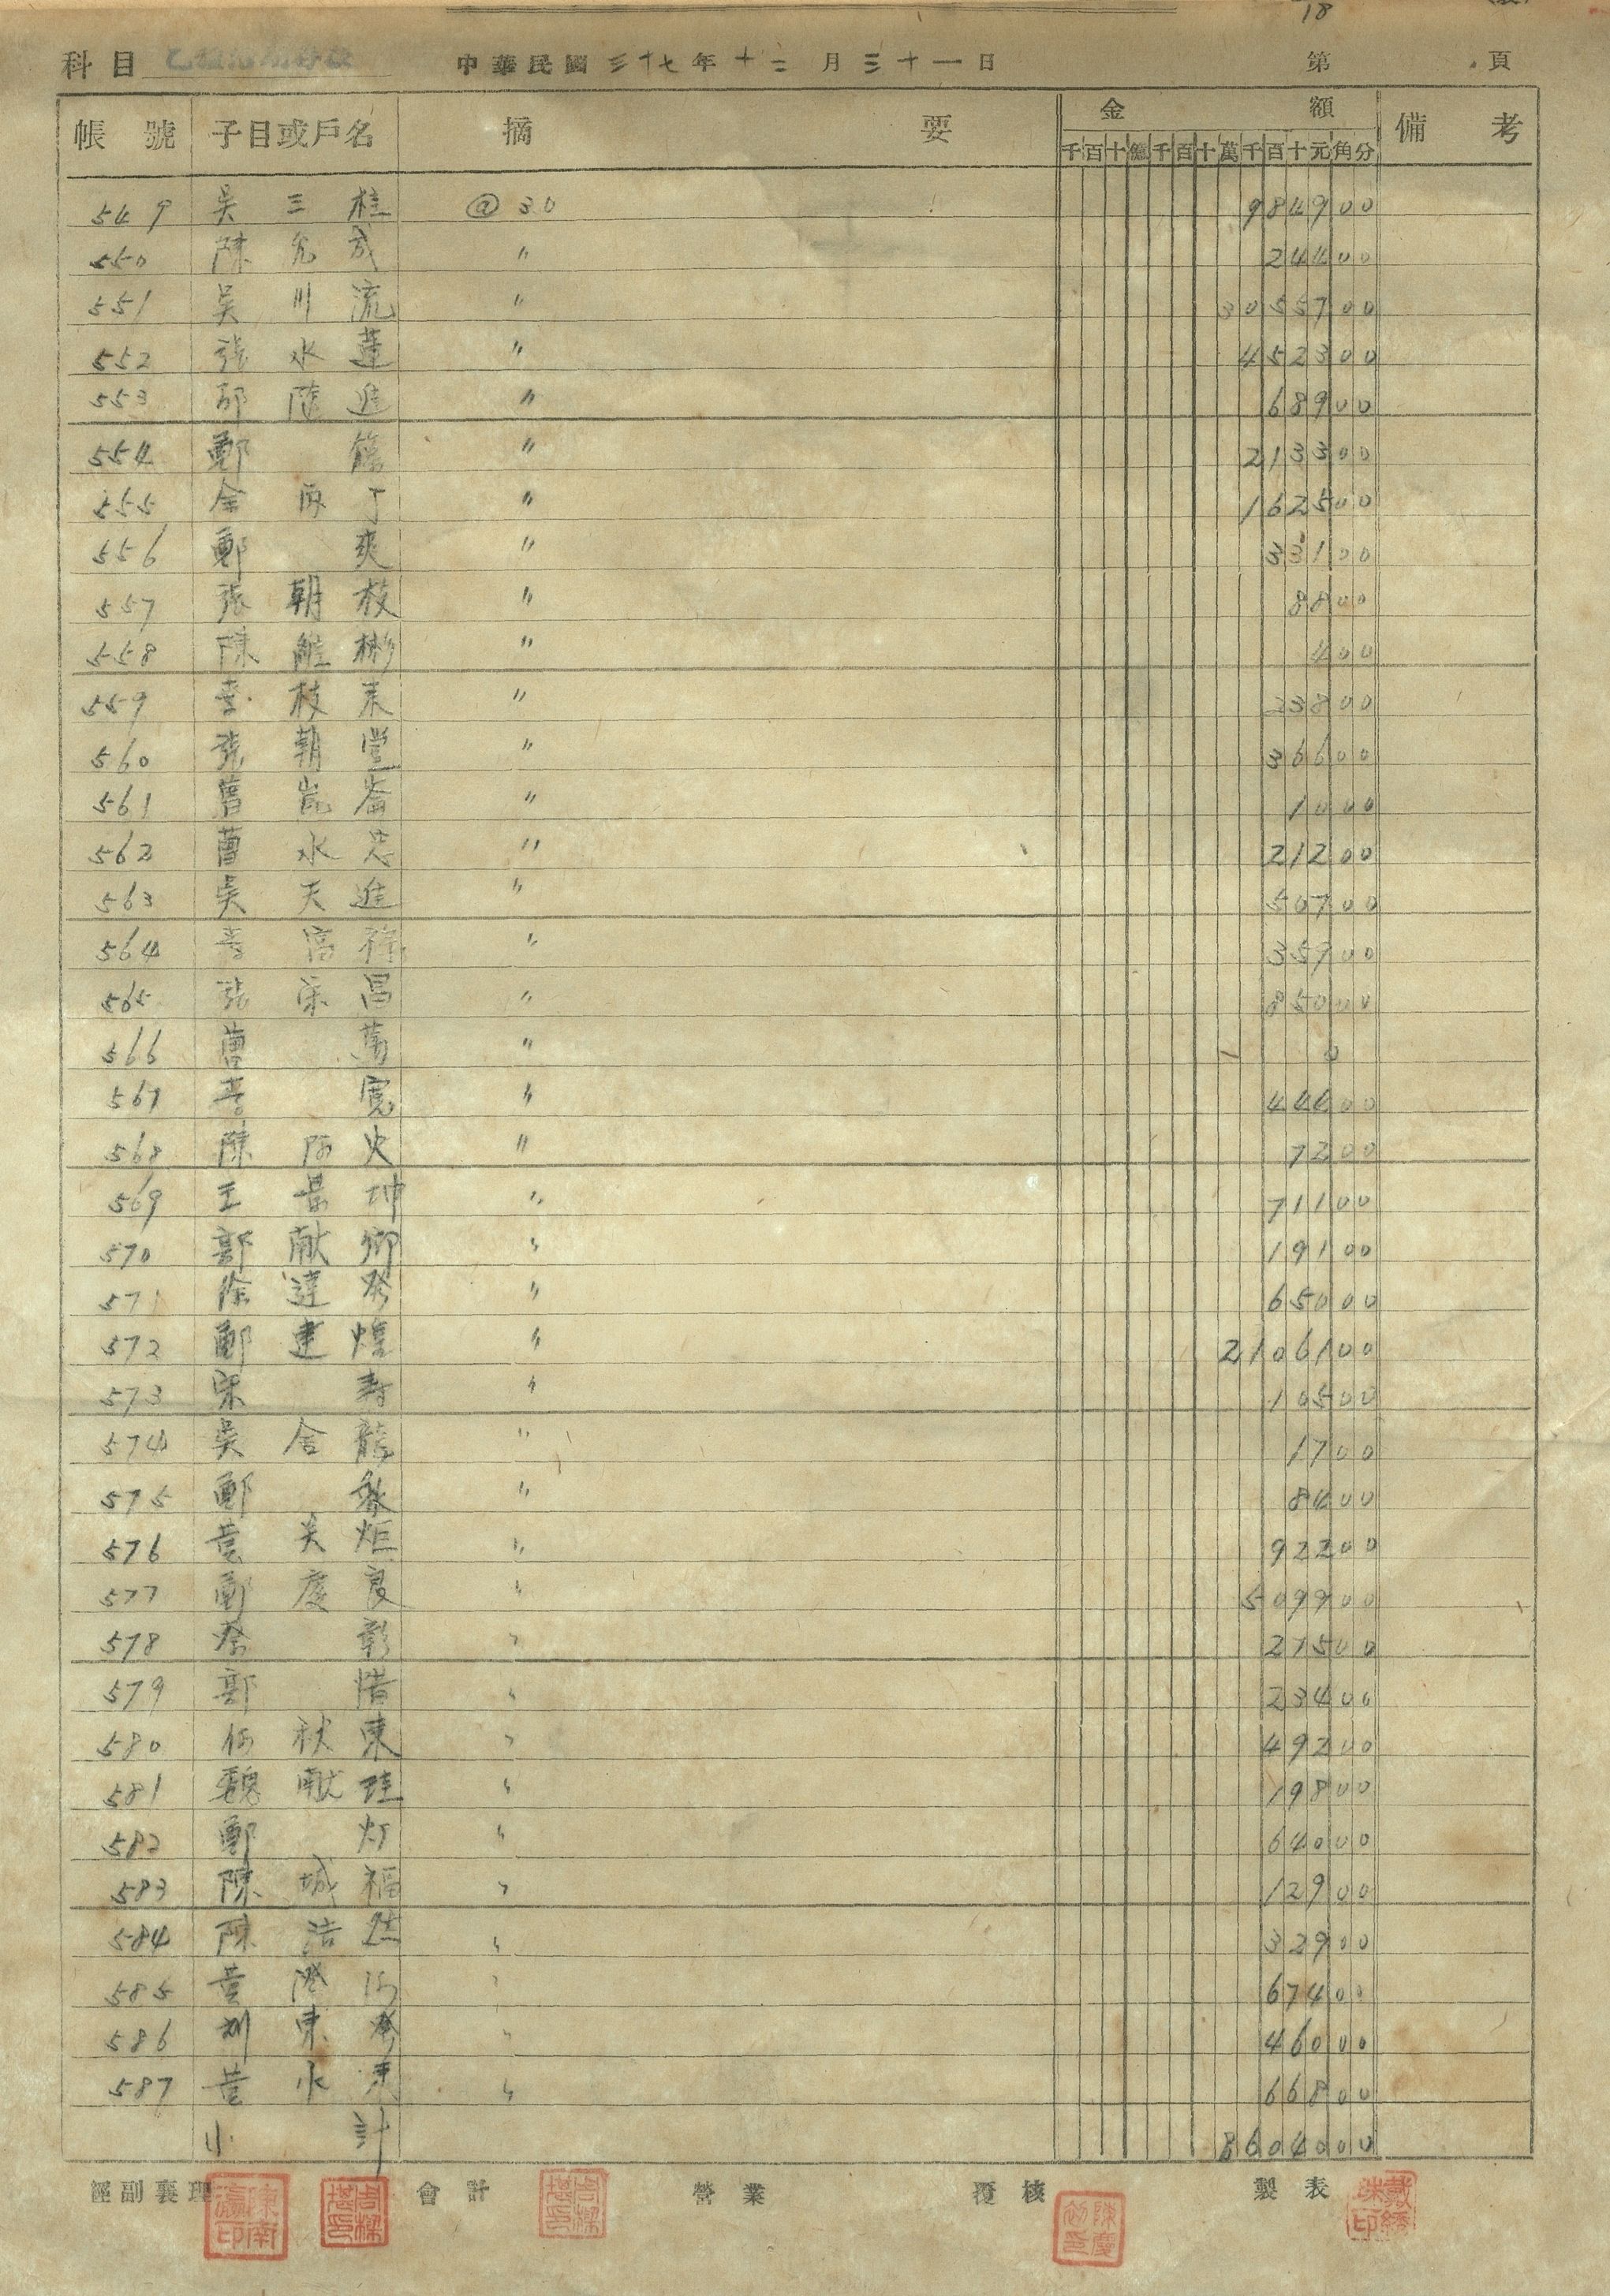 18
科目 乙種活期存款 中華民國三十七年十二月三十一日 第 頁
帳號 子目或戶名 摘要 金額 備考
千百十億千百十萬千百十元角分
549 吳三桂 @30 984900
550 陳允成 〃 24400
551 吳川流 〃 3055700
552 張水蓮 〃 452300
553 邵隨進 〃 68900
554 鄭 〃 213300
555 余丙丁 〃 162500
556 鄭爽 〃 33100
557 張朝枝 〃 8800
558 陳維彬 〃 400
559 李枝來 〃 33800
560 張朝堂 〃 36600
561 曹崑崙 〃 1000
562 曹水忠 〃 21200
563 吳天進 〃 50700
564 李 〃 35900
565 張榮昌 〃 85000
566 曹萬 〃 0
567 李寬 〃 44400
568 陳阿火 〃 7200
569 王 坤 〃 71100
570 郭献卿 〃 19100
571 徐達發 〃 65000
572 鄭建煌 〃 2106100
573 宋壽 〃 10500
574 吳金龍 〃 1700
575 鄭 〃 8400
576 黃炎炬 〃 92200
577 鄭慶良 〃 509900
578 彰 〃 21500
579 郭惜 〃 23400
580 何秋東 〃 49200
581 魏献珪 〃 19800
582 鄭灯 〃 64000
583 陳城福 〃 12900
584 陳浩然 〃 32900
585 黃 河 〃 67400
586 劉東發 〃 46000
587 黃水來 〃 66800
小計 8604000
經副襄理 會計 營業 覆核 製表